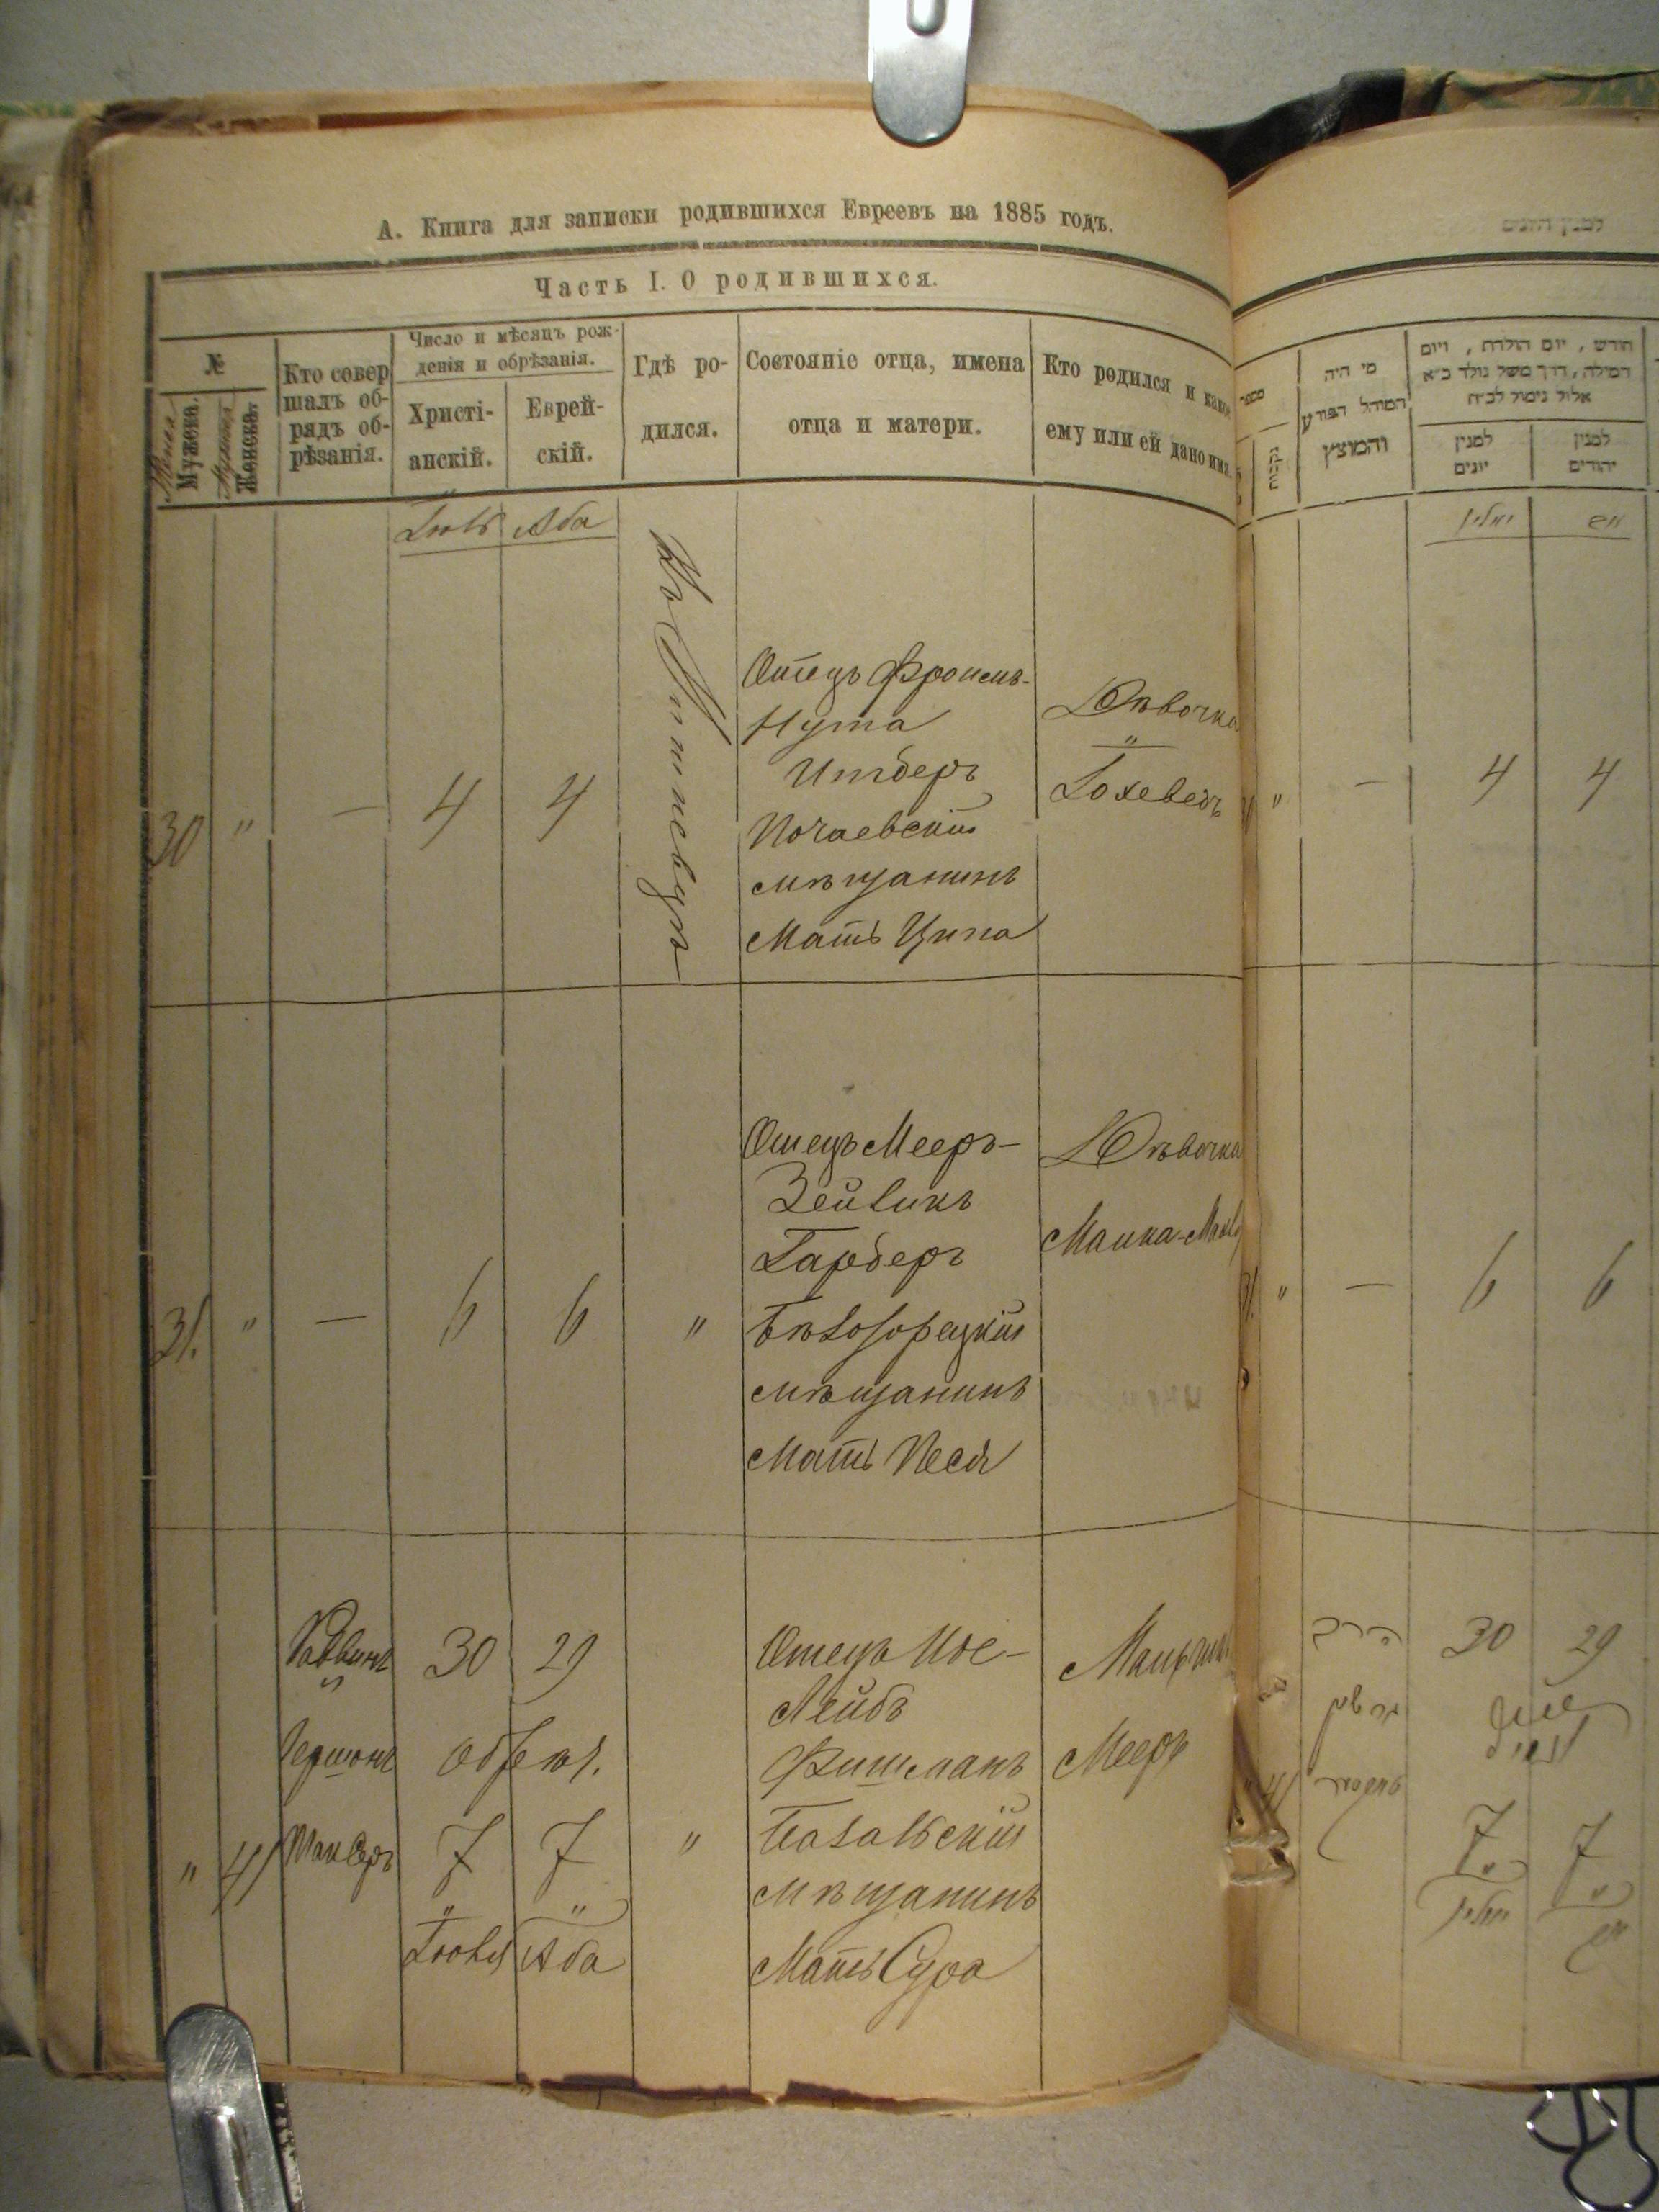 А. Книга для записки родившихся Евреевъ на 1885 годъ.
Часть I. О родившихся.
№
Мужеска.
Женска.
Кто совер
шалъ об-
рядъ об-
рѣзанія.
Число и мѣсяцъ рож-
денія и обрѣзанія.
Христі-
анскій.
Еврей-
скій.
Гдѣ ро-
дился.
Состояніе отца, имена
отца и матери.
Кто родился и какое
ему или ей дано имя.
Іюль Аба
30 " — 4 4
Отецъ Фроимъ-
Нута
Имберъ
Почаевскій
мѣщанинъ
Мать Ципа
Дѣвочка
"
Іохеведъ
31. " — 6 6 "
Отецъ Мееръ-
Зейликъ
Гарберъ
Бѣлозорецкій
мѣщанинъ
Мать Песя
Дѣвочка
Маика-
" 41
Раввинъ
Гершонъ
30 29
обрѣз.
7 7
" "
Іюля Аба
"
Отецъ Іос-
Лейбъ
Фишманъ
мѣщанинъ
Мать Сура
Мальчикъ
Мееръ
למנין היונים
מספר
נקבות
מי היה
המוהל הפורע
והמוצץ
חודש, יום הולדת, ויום
המילה, דרך משל נולד כ״א
אלול נימול לכ״ח
למנין
יונים
למנין
יהודים
יוליי אב
" — 4 4
31. " — 6 6
" 41
הרב
30 29
7 7
" "
יוליי אב